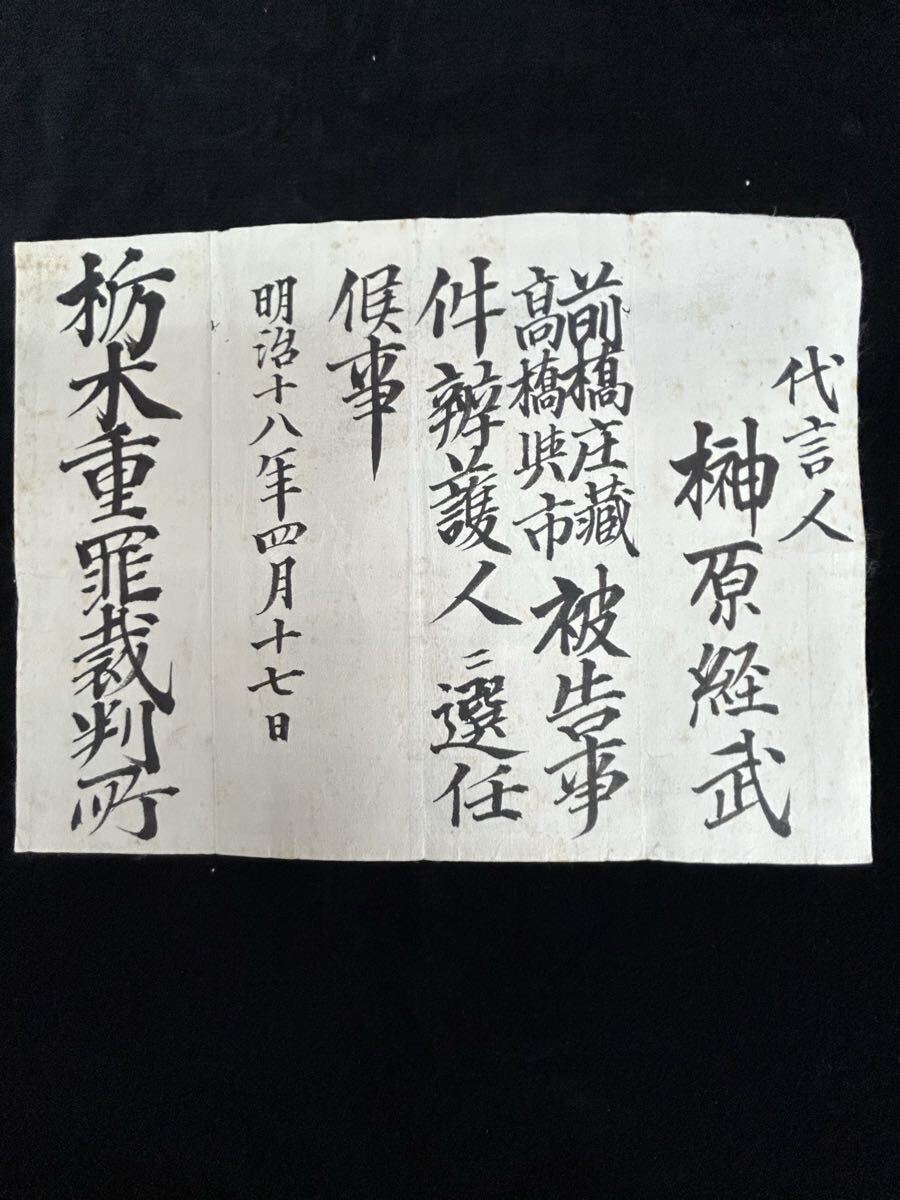 代言人
榊原経武
前橋庄藏
高橋與市
被告事
件辨護人ニ選任
候事
明治十八年四月十七日
栃木重罪裁判所